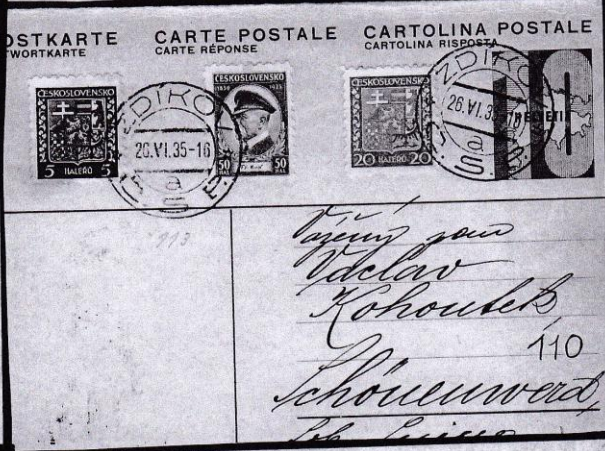 OSTKARTE CARTE POSTALE CARTOLINA POSTALE
TWORTKARTE CARTE RÉPONSE CARTOLINA RISPOSTA
ČESKOSLOVENSKO
5 HALÉŘŮ 5
ZDÍKO
26.VI.35-16
a
ČESKOSLOVENSKO
1850 1935
50 50
ČESKOSLOVENSKO
20 HALÉŘŮ 20
ZDÍKO
26.VI.35
a
HELVETIA
113
Vážený pan
Václav
Kohoutek
110
Schönenwerd,